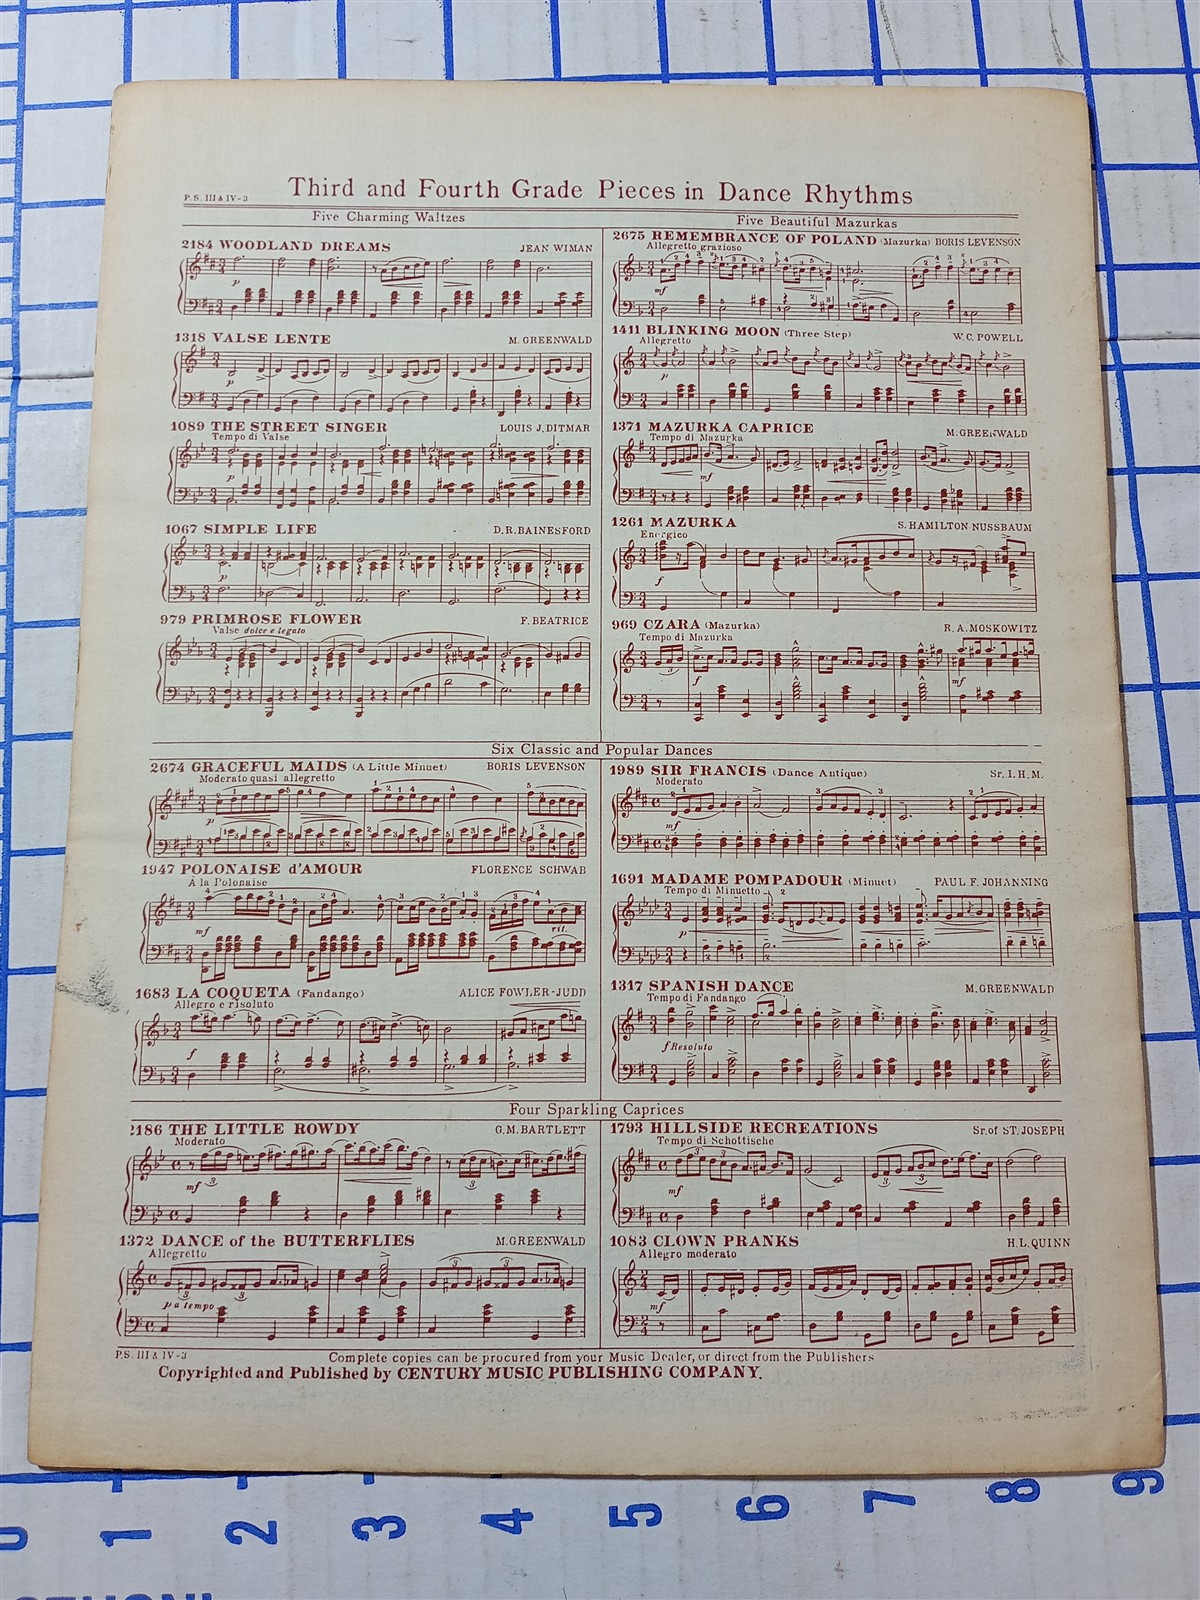 Third and Fourth Grade Pieces in Dance Rhythms
P.S. III & IV-3
Five Charming Waltzes
2184 WOODLAND DREAMS JEAN WIMAN
p
1318 VALSE LENTE M. GREENWALD
p
1089 THE STREET SINGER LOUIS J. DITMAR
Tempo di Valse
p
1067 SIMPLE LIFE D.R. BAINESFORD
p
979 PRIMROSE FLOWER F. BEATRICE
Valse dolce e legato
Five Beautiful Mazurkas
2675 REMEMBRANCE OF POLAND (Mazurka) BORIS LEVENSON
Allegretto grazioso
mf
1411 BLINKING MOON (Three Step) W.C. POWELL
Allegretto
p
1371 MAZURKA CAPRICE M. GREENWALD
Tempo di Mazurka
mf
1261 MAZURKA S. HAMILTON NUSSBAUM
Energico
f
969 CZARA (Mazurka) R.A. MOSKOWITZ
Tempo di Mazurka
f mf
Six Classic and Popular Dances
2674 GRACEFUL MAIDS (A Little Minuet) BORIS LEVENSON
Moderato quasi allegretto
p
1947 POLONAISE d'AMOUR FLORENCE SCHWAB
A la Polonaise
mf rit.
1683 LA COQUETA (Fandango) ALICE FOWLER-JUDD
Allegro e risoluto
f
1989 SIR FRANCIS (Dance Antique) Sr. I.H.M.
Moderato
mf
1691 MADAME POMPADOUR (Minuet) PAUL F. JOHANNING
Tempo di Minuetto
p
1317 SPANISH DANCE M. GREENWALD
Tempo di Fandango
f Resoluto
Four Sparkling Caprices
2186 THE LITTLE ROWDY G.M. BARTLETT
Moderato
mf
1372 DANCE of the BUTTERFLIES M. GREENWALD
Allegretto
p a tempo
1793 HILLSIDE RECREATIONS Sr. of ST. JOSEPH
Tempo di Schottische
mf
1083 CLOWN PRANKS H.L. QUINN
Allegro moderato
mf
P.S. III & IV-3
Complete copies can be procured from your Music Dealer, or direct from the Publishers
Copyrighted and Published by CENTURY MUSIC PUBLISHING COMPANY.
0 1 2 3 4 5 6 7 8 9